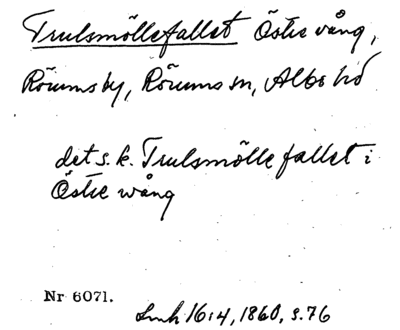 Trulsmöllefallet Östre vång,
Rörums by, Rörums sn, Albo hd
det s.k. Trulsmölle fallet i
Östre wång
Nr 6071.
Lmk 16:4, 1860, s. 76